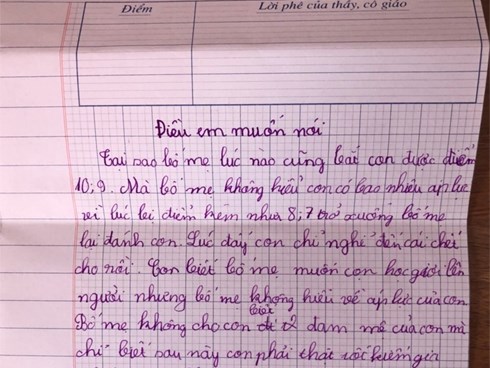 Điểm
Lời phê của thầy, cô giáo
Điều em muốn nói
Tại sao bố mẹ lúc nào cũng bắt con được điểm
10, 9. Mà bố mẹ không hiểu con có bao nhiêu áp lực
vì lúc bị điểm kém như 8, 7 trở xuống bố mẹ
lại đánh con. Lúc đấy con chỉ nghĩ đến cái chết
cho rồi. Con biết bố mẹ muốn con học giỏi lên
người nhưng bố mẹ không hiểu về áp lực của con
Bố mẹ không cho con biết đam mê của con mà
chỉ biết sau này con phải thật